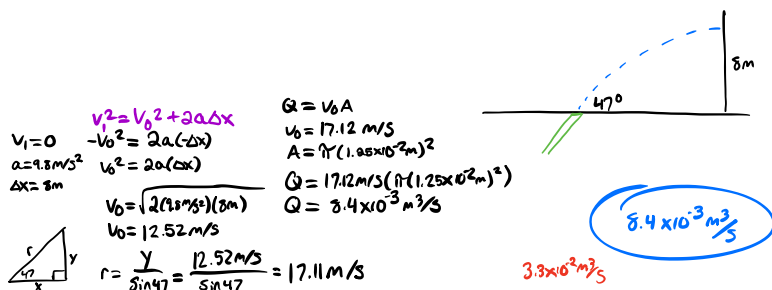 v₁² = v₀² + 2aΔx
v₁ = 0
a = 9.8 m/s²
Δx = 8m
-v₀² = 2a(-Δx)
v₀² = 2a(Δx)
v₀ = √2(9.8m/s²)(8m)
v₀ = 12.52 m/s
r
47
y
x
r = y/sin47 = 12.52m/s/sin47 = 17.11 m/s
Q = v₀A
v₀ = 17.12 m/s
A = π(1.25x10⁻²m)²
Q = 17.12 m/s(π(1.25x10⁻²m)²)
Q = 8.4x10⁻³ m³/s
47°
8m
8.4x10⁻³ m³/s
3.3x10⁻² m³/s